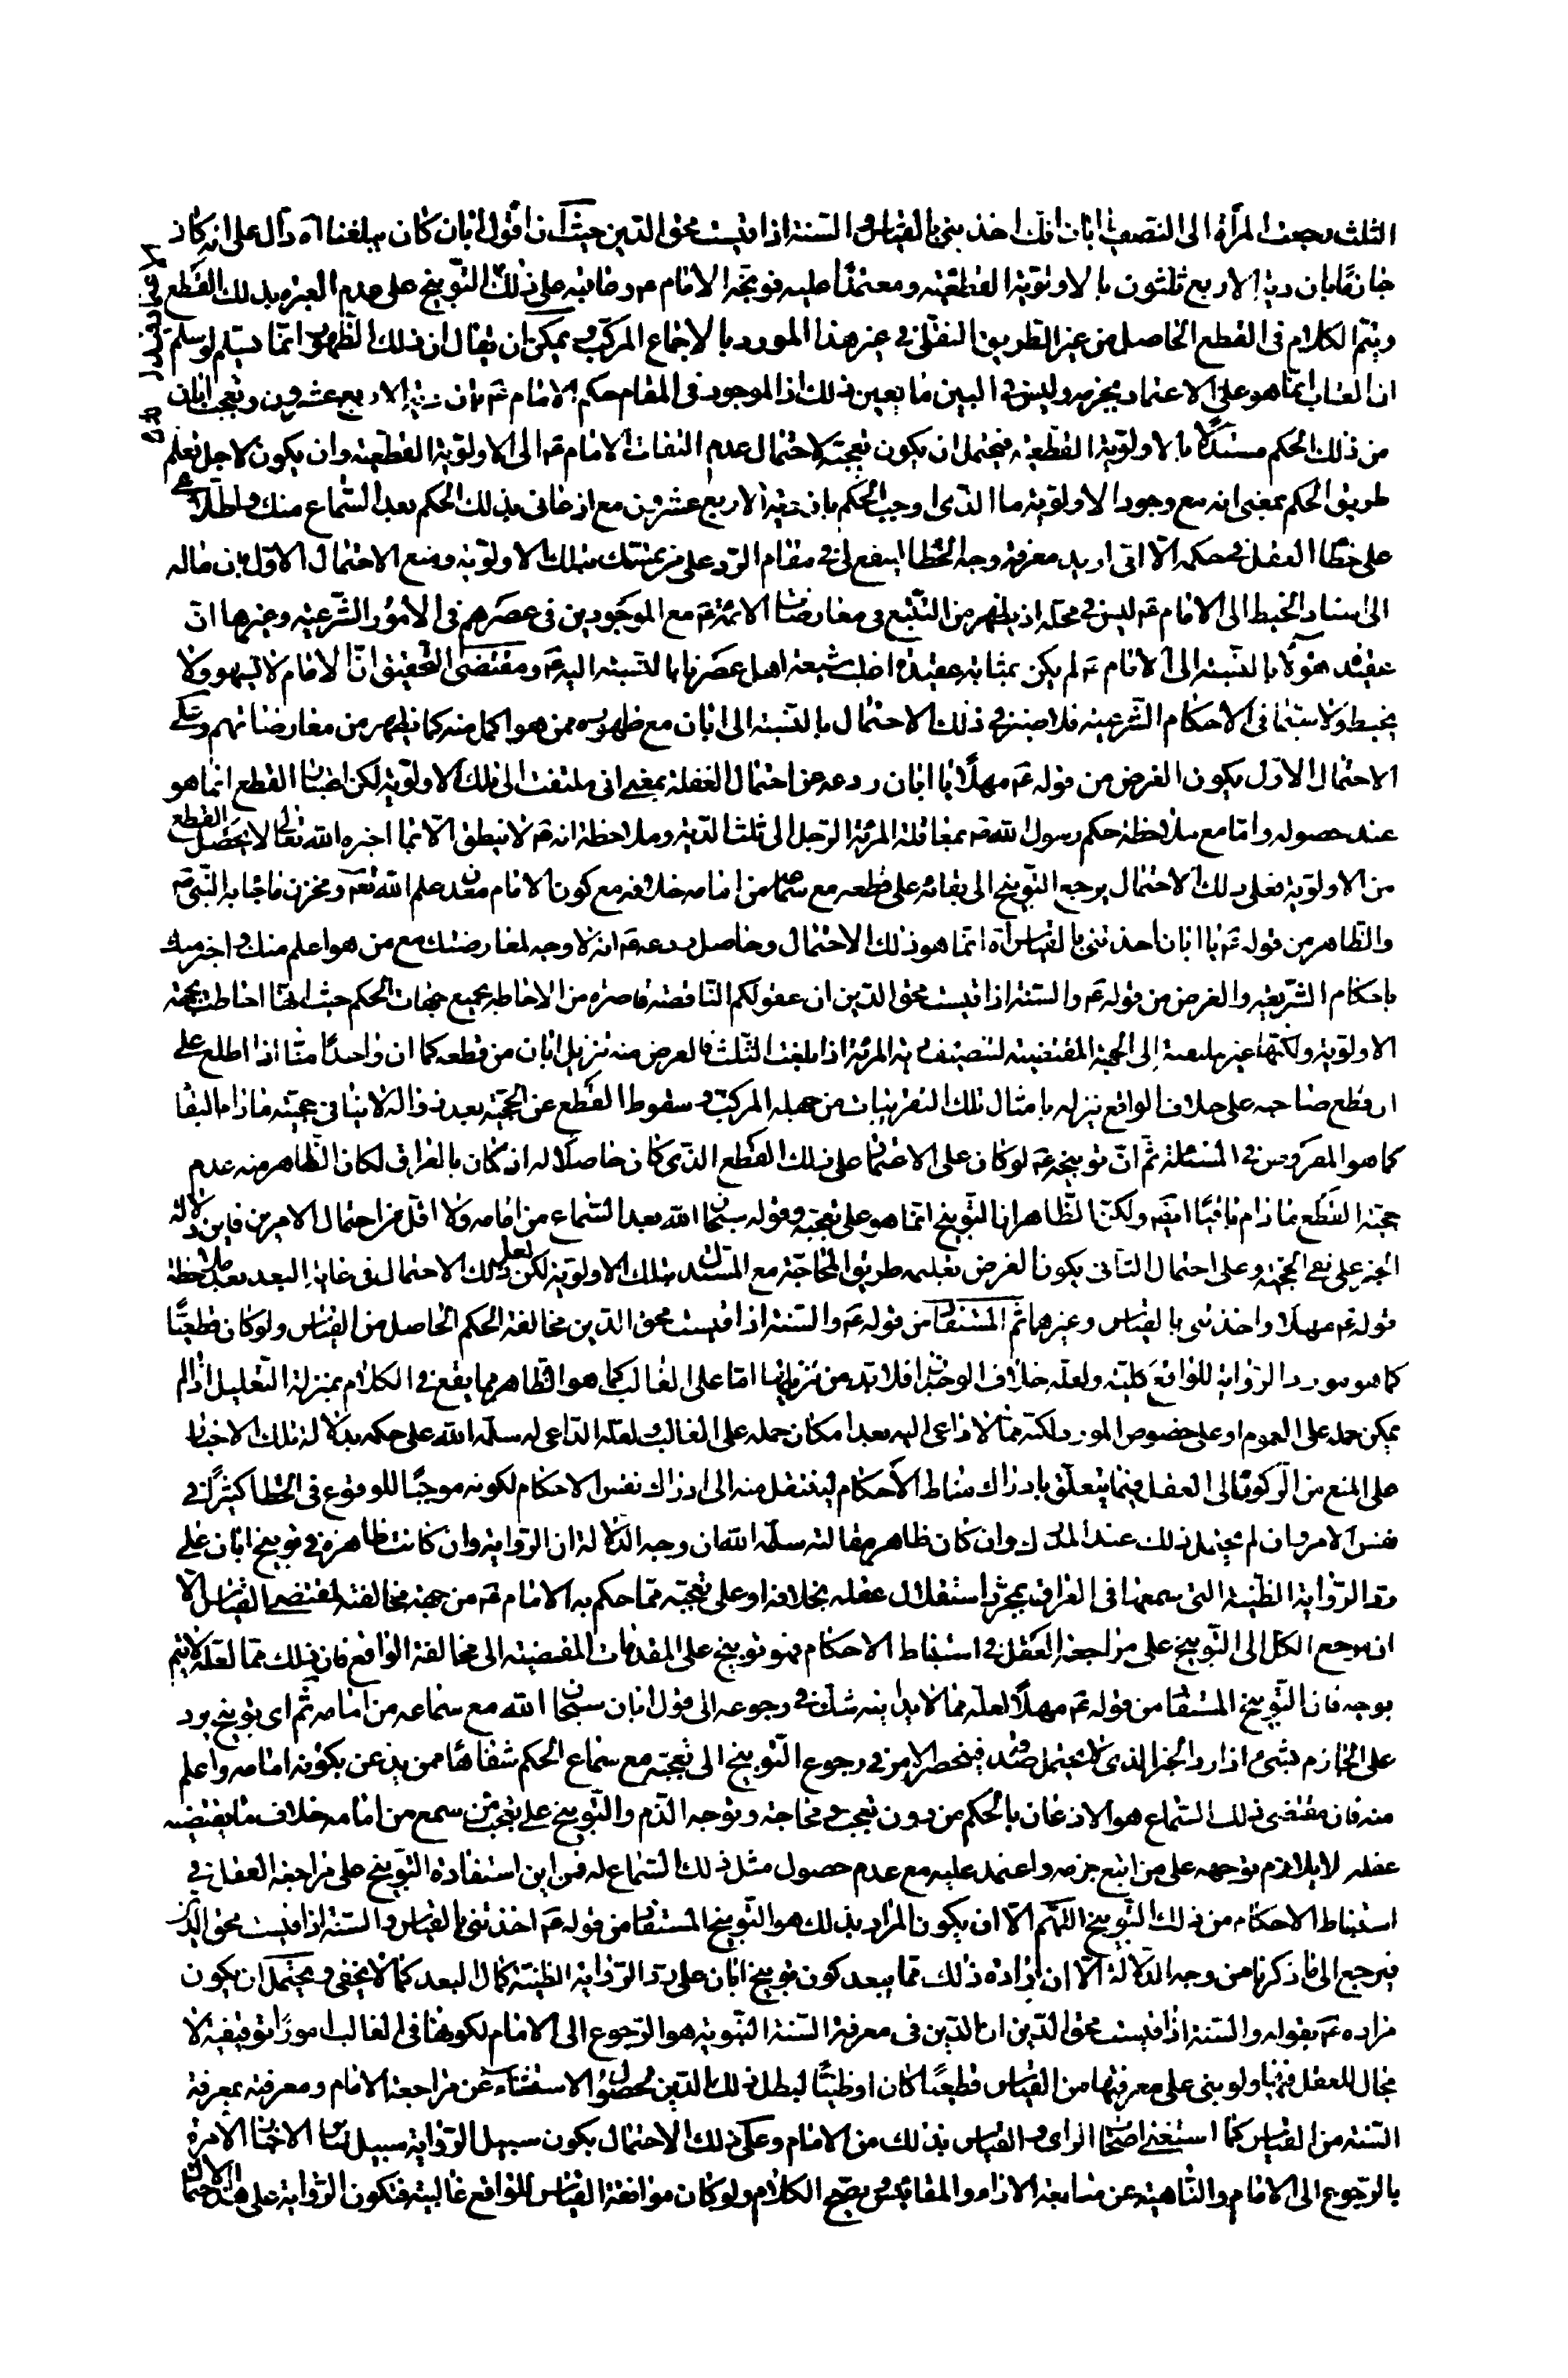 الثلث رجعت المرأة الى النصف يا ابان انك اخذتني بالقياس والسنة اذا قيست محق الدين حيث ان قول ابان كان يبلغنا اه دال على انه كان
جازما بان دية الاربع ثلثون بالاولوية القطعية ومعتمدا عليه فتوبيخ الامام ع وعتابه على ذلك التوبيخ على عدم العبرة بذلك القطع
ويتم الكلام في القطع الحاصل من غير الطريق النقلى في غير هذا المورد بالاجماع المركب ويمكن ان يقال ان ذلك الظهور انما يسلم لو سلم
ان العتاب انما هو على الاعتماد بجزمه وليس في البين ما يعين ذلك اذ الموجود في المقام حكم الامام ع بان دية الاربع عشرون وتعجب ابان
من ذلك الحكم مستدلا بالاولوية القطعية فيحتمل ان يكون تعجبه لاحتمال عدم التفات الامام ع الى الاولوية القطعية وان يكون لاجل تعلم
طريق الحكم بمعنى انه مع وجود الاولوية ما الذى اوجب الحكم بان دية الاربع عشرين مع اذعانى بذلك الحكم بعد السماع منك واطلاعى
على خطا العقل في حكمه الا انى اريد معرفة وجه الخطا لينفع لى في مقام الرد على من يتمسك بتلك الاولوية ومنع الاحتمال الاول بان ماله
الى اسناد الخبط الى الامام ع ليس في محله اذ يظهر من التتبع في معارضات الائمة ع مع الموجودين في عصرهم في الامور الشرعية وغيرها ان
عقيدة هؤلاء بالنسبة الى الامام ع لم يكن بمثابة عقيدة اغلب شيعة اهل عصرنا بالنسبة اليه ع ومقتضى التحقيق ان الامام لا يسهو ولا
يخبط ولا سيما في الاحكام الشرعية فلا ضير في ذلك الاحتمال بالنسبة الى ابان مع ظهوره ممن هو اكمل منه كما يظهر من معارضاتهم وعلى
الاحتمال الاول يكون الغرض من قوله ع مهلا يا ابان ردعه عن احتمال الغفلة بمعنى انى ملتفت الى تلك الاولوية لكن القطع انما هو
عند حصوله واما مع ملاحظة حكم رسول الله ص بمعاقلة المرئة الرجل الى ثلث الدية وملاحظة انه ص لا ينطق الا بما اخبره الله تعالى لا يحصل القطع
من الاولوية فعلى ذلك الاحتمال يرجع التوبيخ الى بقائه على قطعه مع سماعه من امامه خلافه مع كون الامام معدن علم الله تعالى ومخزن ما جاء به النبي ص
والظاهر من قوله ع يا ابان اخذتني بالقياس اه انما هو ذلك الاحتمال وحاصل ردعه ع انه لا وجه لمعارضتك مع من هو اعلم منك واخبر منك
باحكام الشريعة والغرض من قوله ع والسنة اذا قيست محق الدين ان عقولكم الناقصة قاصرة من الاحاطة بجميع جهات الحكم حيث انها احاطت بجهة
الاولوية ولكنها غير ملتفتة الى الجهة المقتضية لتنصيف دية المرئة اذا بلغت الثلث فالغرض منه تنزيل ابان من قطعه كما ان واحدا منا اذا اطلع على
ان قطع صاحبه على خلاف الواقع ينزله بامثال تلك التقريبات من جهله المركب وسقوط القطع عن الحجية بعد زواله لا ينافي حجيته مادام البقاء
كما هو المفروض في المسئلة ثم ان توبيخه ع لو كان على الاعتماد على ذلك القطع الذى كان حاصلا له ان كان بالعراق لكان الظاهر منه عدم
حجية القطع مادام باقيا ايضا ولكن الظاهر ان التوبيخ انما هو على تعجبه وقوله سبحان الله بعد السماع من امامه ولا اقل من احتمال الامرين فاين دلالة
الخبر على نفى الحجية وعلى احتمال الثانى يكون الغرض تعليمه طريق المحاجة مع المستدل بتلك الاولوية لكن لعل ذلك الاحتمال في غاية البعد بعد ملاحظة
قوله ع مهلا واخذتنى بالقياس وغيرهما ثم المستفاد من قوله ع والسنة اذا قيست محق الدين مخالفة الحكم الحاصل من القياس ولو كان قطعيا
كما هو مورد الرواية للواقع كلية ولعله خلاف الوجدان فلا بد من تنزيلها اما على الغالب كما هو الظاهر مما يقع في الكلام بمنزلة التعليل اذا لم
يمكن حمله على العموم او على خصوص المورد لكنه مما لا داعى اليه بعد امكان حمله على الغالب ولعله الداعى له سلمه الله على حكمه بدلالة تلك الاخبار
على المنع من الركون الى العقل فيما يتعلق بادراك مناط الاحكام لينتقل منه الى ادراك نفس الاحكام لكونه موجبا للوقوع في الخطا كثيرا في
نفس الامر وان لم يحتمل ذلك عند المدرك وان كان ظاهر مقالته سلمه الله ان وجه الدلالة ان الرواية وان كانت ظاهرة في توبيخ ابان على
رد الرواية الظنية التى سمعها في العراق بمجرد استقلال عقله بخلافه او على تعجبه مما حكم به الامام ع من جهة مخالفته لمقتضى القياس الا
ان مرجع الكل الى التوبيخ على مراجعة العقل في استنباط الاحكام فهو توبيخ على المقدمات المفضية الى مخالفة الواقع فان ذلك مما لعله لا يتم
بوجه فان التوبيخ المستفاد من قوله ع مهلا لعله مما لا يدانيه شك في رجوعه الى قول ابان سبحان الله مع سماعه من امامه ثم اى توبيخ يرد
على الجازم بشئ اذا رد الخبر الذى لا يحتمل صدقه فينحصر الامر في رجوع التوبيخ الى تعجبه مع سماع الحكم شفاها ممن يذعن بكونه امامه واعلم
منه فان مقتضى ذلك السماع هو الاذعان بالحكم من دون تعجب ومحاجة وتوجه الذم والتوبيخ على تعجب من سمع من امامه خلاف ما يقتضيه
عقله لا يلازم توجهه على من اتبع جزمه واعتمد عليه مع عدم حصول مثل ذلك السماع له فمن اين استفادة التوبيخ على مراجعة العقل في
استنباط الاحكام من ذلك التوبيخ اللهم الا ان يكون المراد بذلك هو التوبيخ المستفاد من قوله ع اخذتنى بالقياس والسنة اذا قيست محق الدين
فيرجع الى ما ذكرنا من وجه الدلالة الا ان ارادة ذلك مما يبعد كون توبيخ ابان على رد الرواية الظنية كمال البعد كما لا يخفى ويحتمل ان يكون
مراده ع بقوله والسنة اذا قيست محق الدين ان الدين في معرفة السنة النبوية هو الرجوع الى الامام لكونها في الغالب امورا توقيفية لا
مجال للعقل فيها ولو بنى على معرفتها من القياس قطعيا كان او ظنيا لبطل ذلك الدين لحصول الاستغناء عن مراجعة الامام ومعرفته بمعرفة
السنة من القياس كما استغنى اصحاب الراى والقياس بذلك من الامام وعلى ذلك الاحتمال يكون سبيل الرواية سبيل ساير الاخبار الامرة
بالرجوع الى الامام والناهية عن متابعة الاراء والمقائيس ويصح الكلام ولو كان موافقة القياس للواقع غالبية فتكون الرواية على هذا الاحتمال